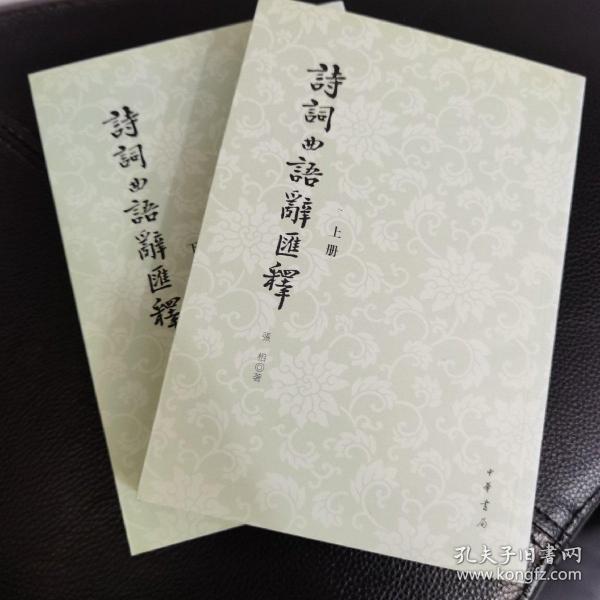 詩詞曲語辭匯釋
上册
張相◎著
中華書局
詩詞曲語辭匯釋
孔夫子旧書网
www.kongfz.com